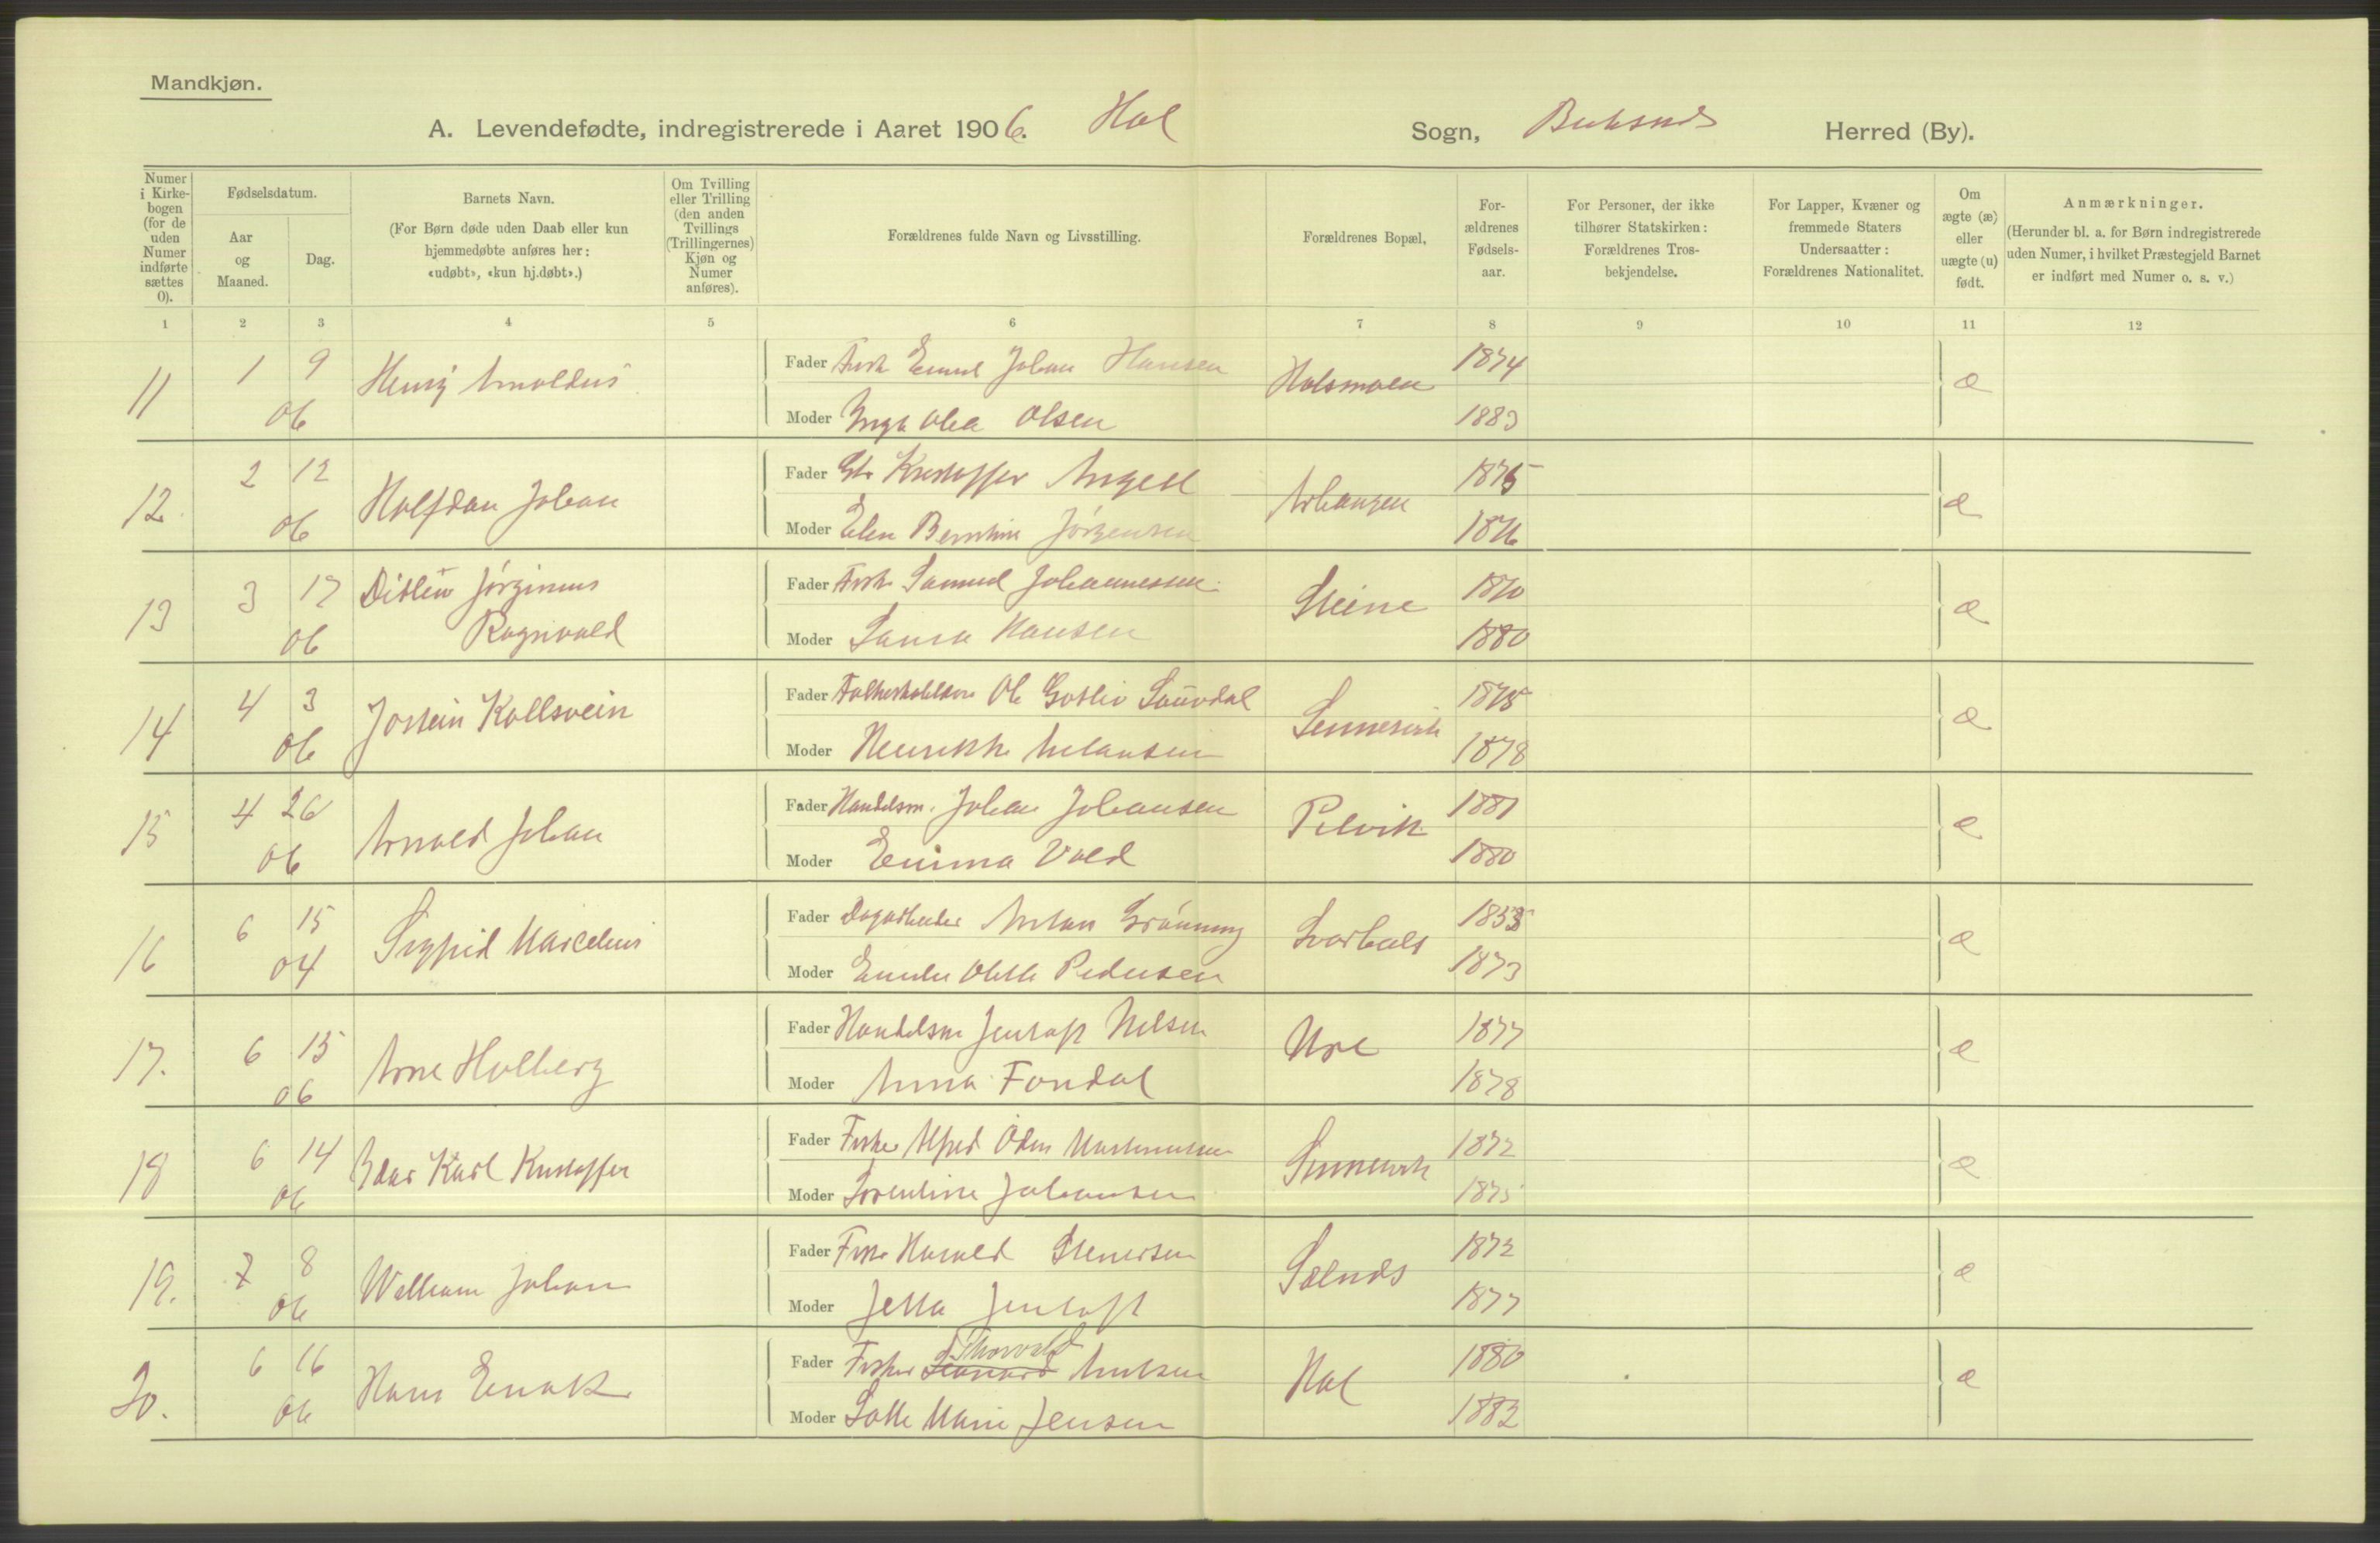 Mandkjøn.
A. Levendefødte, indregistrerede i Aaret 1906. Hol Sogn, Buksnes Herred (By).
Numer i Kirkebogen (for de uden Numer indførte sættes 0).
Fødselsdatum.
Aar og Maaned.
Dag.
Barnets Navn.
(For Børn døde uden Daab eller kun
hjemmedøbte anføres her:
«udøbt», «kun hj.døbt».)
Om Tvilling
eller Trilling
(den anden
Tvillings
(Trillingernes)
Kjøn og
Numer
anføres).
Forældrenes fulde Navn og Livsstilling.
Forældrenes Bopæl,
For-
ældrenes
Fødsels-
aar.
For Personer, der ikke
tilhører Statskirken:
Forældrenes Tros-
bekjendelse.
For Lapper, Kvæner og
fremmede Staters
Undersaatter:
Forældrenes Nationalitet.
Om
ægte (æ)
eller
uægte (u)
født.
Anmærkninger.
(Herunder bl. a. for Børn indregistrerede
uden Numer, i hvilket Præstegjeld Barnet
er indført med Numer o. s. v.)
1 2 3 4 5 6 7 8 9 10 11 12
11 1 9 06 Henrij Arnoldus
Fader Fisk Emil Johan Hansen Holsmoen 1874 æ
Moder Inga Olea Olsen 1883
12. 2 12 06 Halfdan Johan
Fader Kristoffer Angell 1875 æ
Moder Elen Berntine Jørgensen 1876
13 3 17 06 Ditlew Jørginus
Ragnvald
Fader Fisk Samuel Johannessen Steine 1870 æ
Moder Laura Hansen 1880
14 4 3 06 Jostein Kollsvein
Fader Ole Gotliv Sennesvik 1875 æ
Moder 1878
15 4 26 06 Arnold Johan
Fader Handelsm. Johan Johansen Pilvik 1881 æ
Moder Emma Vold 1880
16 6 15 04 Sigfrid Marcelius
Fader Dagarbeider Anton Grønning Svarholt æ
Moder Pedersen 1873
17. 6 15 06 Arne Holberg
Fader Handelsm Jentoft Nilsen Ure 1877 æ
Moder Anna Fondal 1878
18 6 14 06 Karl Kristoffer
Fader Fisker Alfred Odin Martinussen Sennesvik 1872 æ
Moder Sorentine Johansen 1875
19. 7 8 06 William Johan
Fader Fisk Harald Stenersen 1872 æ
Moder Jetta Jentoft 1877
20. 6 16 06 Hans Enok
Thorvald
Fader Fisker Leonard Antsen Hol 1880 æ
Moder Lotte Marie Jensen 1882